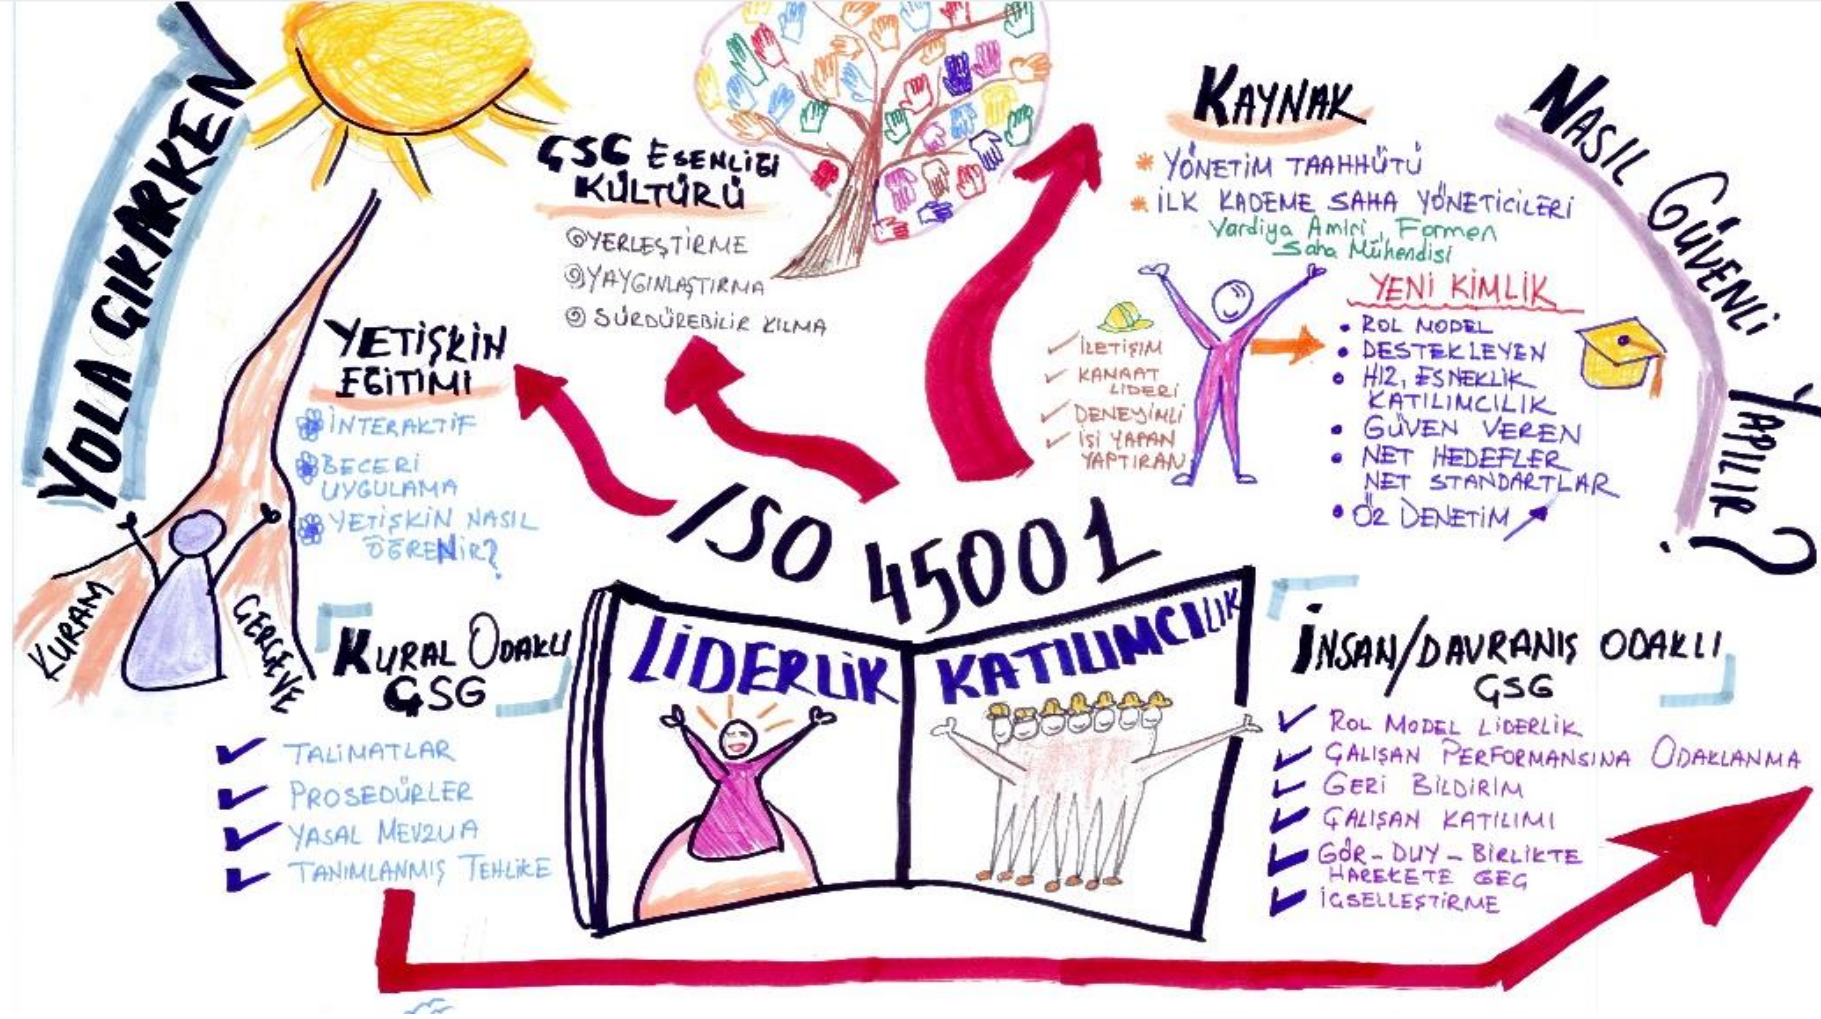 YOLA ÇIKARKEN
KURAM
ÇERÇEVE
YETİŞKİN
EĞİTİMİ
İNTERAKTİF
BECERİ
UYGULAMA
YETİŞKİN NASIL
ÖĞRENİR?
ÇSG ESENLİĞİ
KÜLTÜRÜ
YERLEŞTİRME
YAYGINLAŞTIRMA
SÜRDÜREBİLİR KILMA
KAYNAK
* YÖNETİM TAAHHÜTÜ
* İLK KADEME SAHA YÖNETİCİLERİ
Vardiya Amiri, Formen
Saha Mühendisi
✓ İLETİŞİM
✓ KANAAT
LİDERİ
✓ DENEYİMLİ
✓ İŞİ YAPAN
YAPTIRAN
YENİ KİMLİK
• ROL MODEL
• DESTEKLEYEN
• HIZ, ESNEKLİK
KATILIMCILIK
• GÜVEN VEREN
• NET HEDEFLER
NET STANDARTLAR
• ÖZ DENETİM
NASIL GÜVENLİ YAPILIR?
ISO 45001
LİDERLİK
KATILIMCILIK
KURAL ODAKLI
ÇSG
✓ TALİMATLAR
✓ PROSEDÜRLER
✓ YASAL MEVZUA
✓ TANIMLANMIŞ TEHLİKE
İNSAN/DAVRANIŞ ODAKLI
ÇSG
✓ ROL MODEL LİDERLİK
✓ ÇALIŞAN PERFORMANSINA ODAKLANMA
✓ GERİ BİLDİRİM
✓ ÇALIŞAN KATILIMI
✓ GÖR-DUY-BİRLİKTE
HAREKETE GEÇ
✓ İÇSELLEŞTİRME